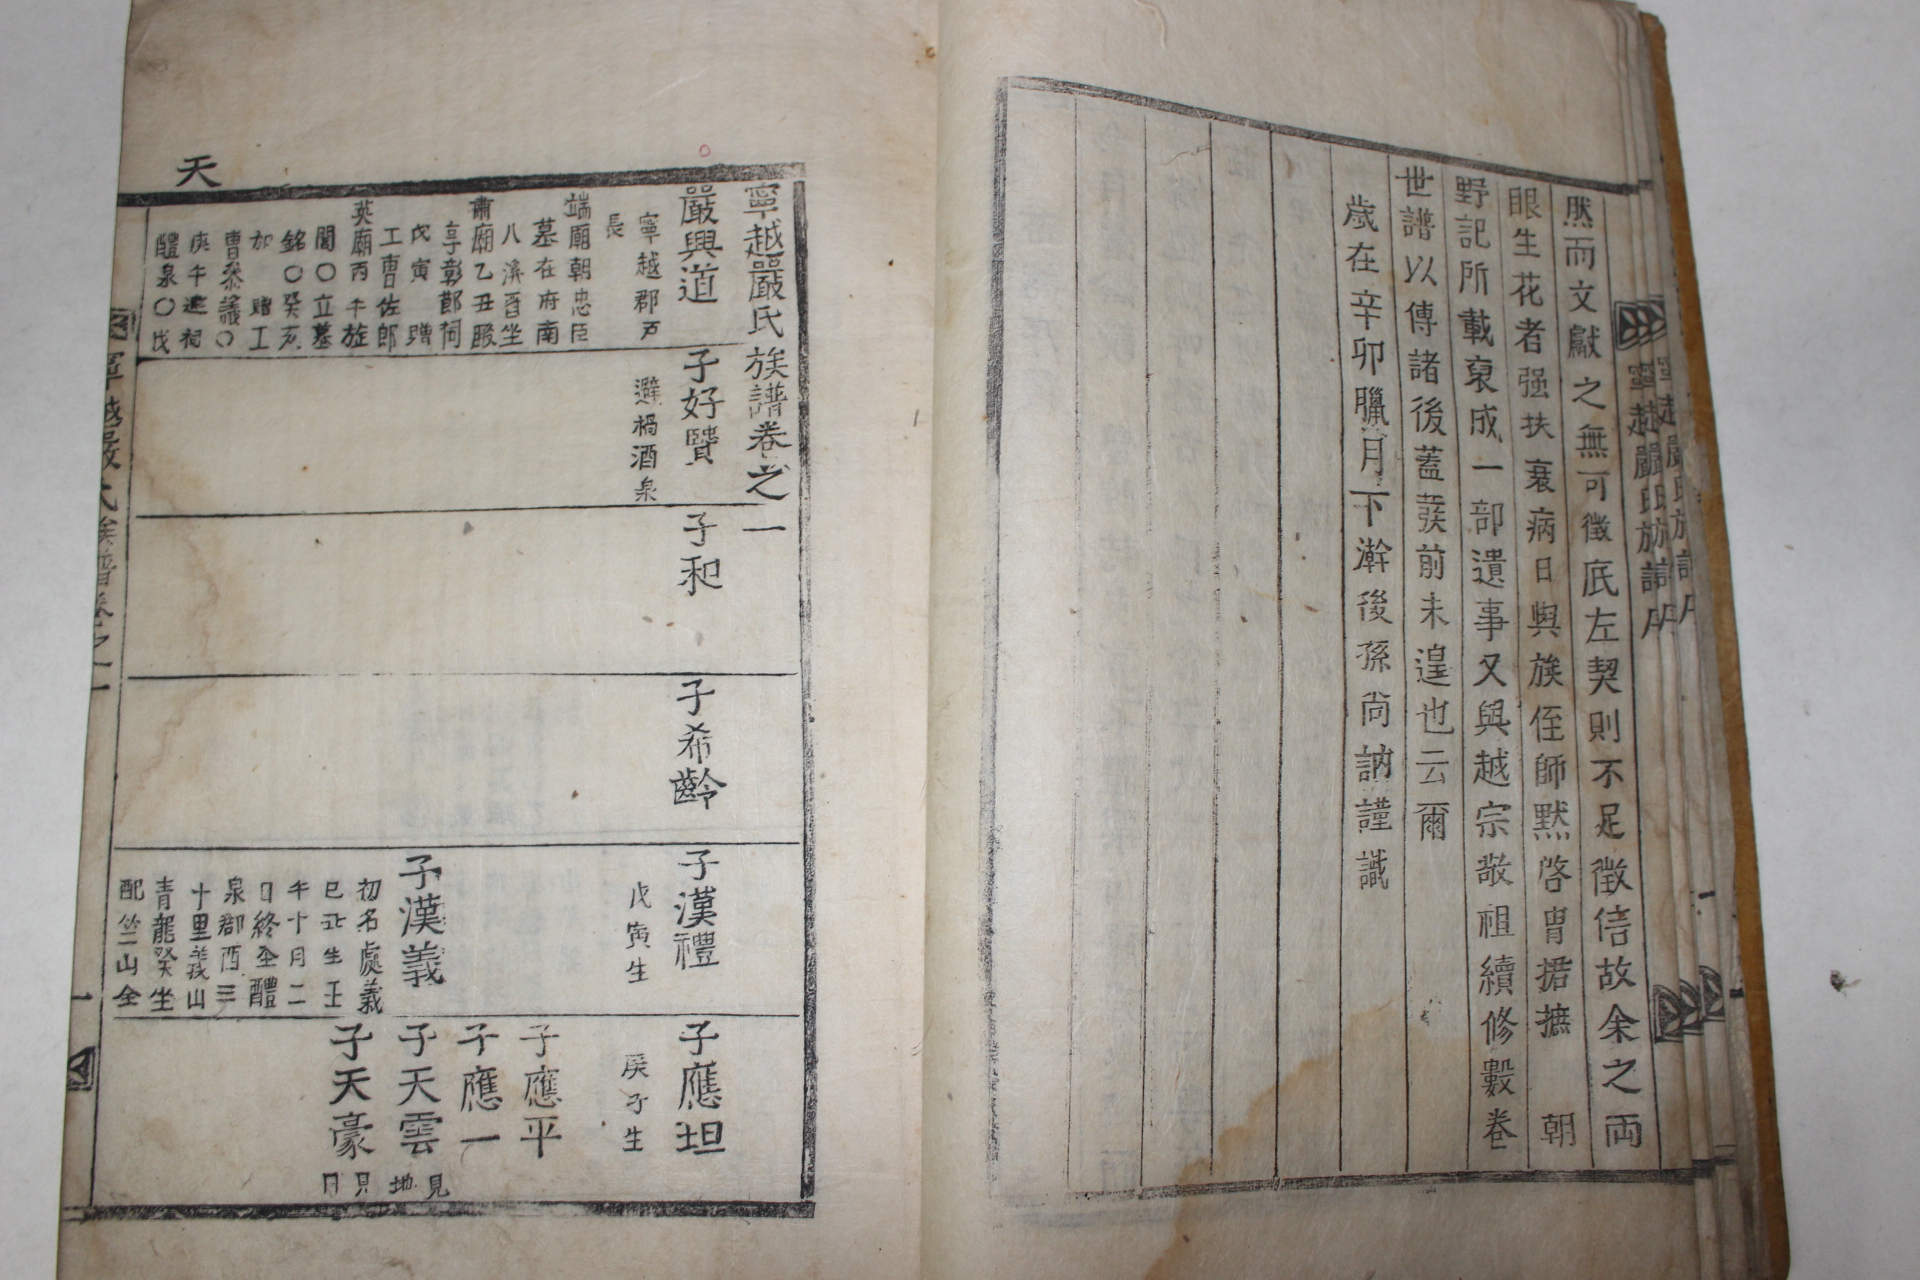 然而文獻之無可徵底左契則不足徵信故余之兩
眼生花者强扶衰病日與族侄師默啓胄捃摭 朝
野記所載裒成一部遺事又與越宗敬祖續修數卷
世譜以傳諸後蓋發前未遑也云爾
歲在辛卯臘月下澣後孫尚訥謹識
寧越嚴氏族譜
天
寧越嚴氏族譜卷之一
嚴興道
寧越郡戶
長
端廟朝忠臣
墓在府南
八濱酉坐
肅廟乙丑服
享彰節祠
戊寅 贈
工曹佐郎
英廟丙午旌
閭〇立墓
銘〇癸亥
加 贈工
曹參議〇
庚午建祠
醴泉〇戊
子好賢
避禍酒泉
子和
子希齡
子漢禮
戊寅生
子漢義
初名處義
巳丑生壬
午十月二
日終全醴
泉郡西三
十里義山
青龍癸坐
配竺山全
子應坦
庚子生
子應平
子應一
子天雲
見地
子天豪
見日
寧越嚴氏族譜卷之一
一